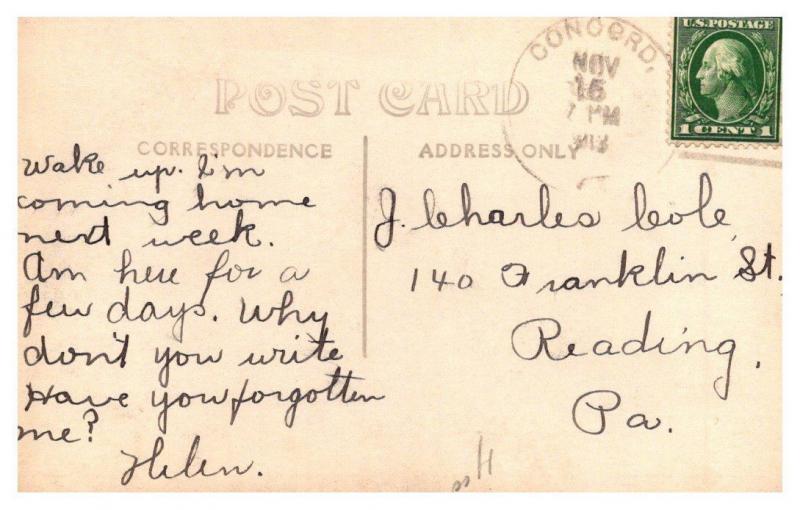 U.S. POSTAGE
1 CENT 1
CONCORD,
NOV
16
7 PM
POST CARD
CORRESPONDENCE
ADDRESS ONLY
Wake up. I'm
coming home
next week.
Am here for a
few days. Why
don't you write
Have you forgotten
me?
Helen.
J. Charles Cole,
140 Franklin St.
Reading,
Pa.